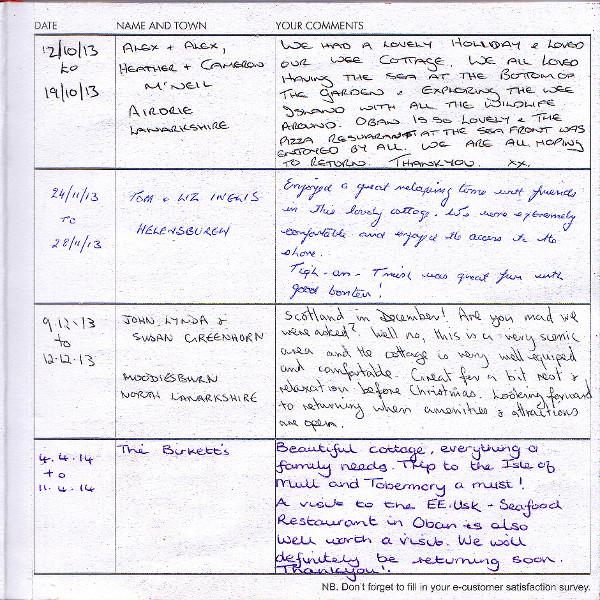 DATE NAME AND TOWN YOUR COMMENTS
12/10/13
to
19/10/13
ALEX + ALEX,
HEATHER + CAMERON
M'NEIL
AIRDRIE
LANARKSHIRE
WE HAD A LOVELY HOLIDAY & LOVED
OUR WEE COTTAGE. WE ALL LOVED
HAVING THE SEA AT THE BOTTOM OF
THE GARDEN & EXPLORING THE WEE
ISLAND WITH ALL THE WILDLIFE
AROUND. OBAN IS SO LOVELY & THE
PIZZA RESUARANT AT THE SEA FRONT WAS
ENJOYED BY ALL. WE ARE ALL HOPING
TO RETURN. THANKYOU. xx.
24/11/13
TO
28/11/13
TOM & LIZ INGLIS
HELENSBURGH
Enjoyed a great relaxing time with friends
in this lovely cottage. We were extremely
comfortable and enjoyed the access to the
shore.
Tigh-an-Truish was great fun with
good banter!
9.12.13
to
12.12.13
JOHN, LYNDA &
SUSAN GREENHORN
MOODIESBURN
NORTH LANARKSHIRE
Scotland in December! Are you mad we
were asked? Well no, this is a very scenic
area and the cottage is very well equiped
and comfortable. Great for a bit rest &
relaxation before Christmas. Looking forward
to returning when amenities & attractions
are open.
4.4.14
to
11.4.14
The Birkett's
Beautiful cottage, everything a
family needs. Trip to the Isle of
Mull and Tobermory a must!
A visit to the EE-Usk - Seafood
Restaurant in Oban is also
well worth a visit. We will
definitely be returning soon.
Thankyou!.
NB. Don't forget to fill in your e-customer satisfaction survey.